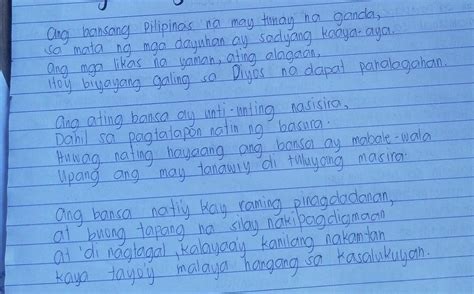 Ang bansang Pilipinas na may tunay na ganda,
sa mata ng mga dayuhan ay sadyang kaaya-aya.
Ang mga likas na yaman, ating alagaan,
Itoy biyayang galing sa Diyos na dapat pahalagahan.
Ang ating bansa ay unti-unting nasisira,
Dahil sa pagtatapon natin ng basura.
Huwag nating hayaang ang bansa ay mabale-wala
Upang ang may tanawiy di tuluyang masira.
Ang bansa natiy kay raming pinagdadanan,
at buong tapang na silay nakipagdigmaan
at 'di nagtagal, kalayaay kanilang nakamtan
kaya tayo'y malaya hangang sa kasalukuyan.